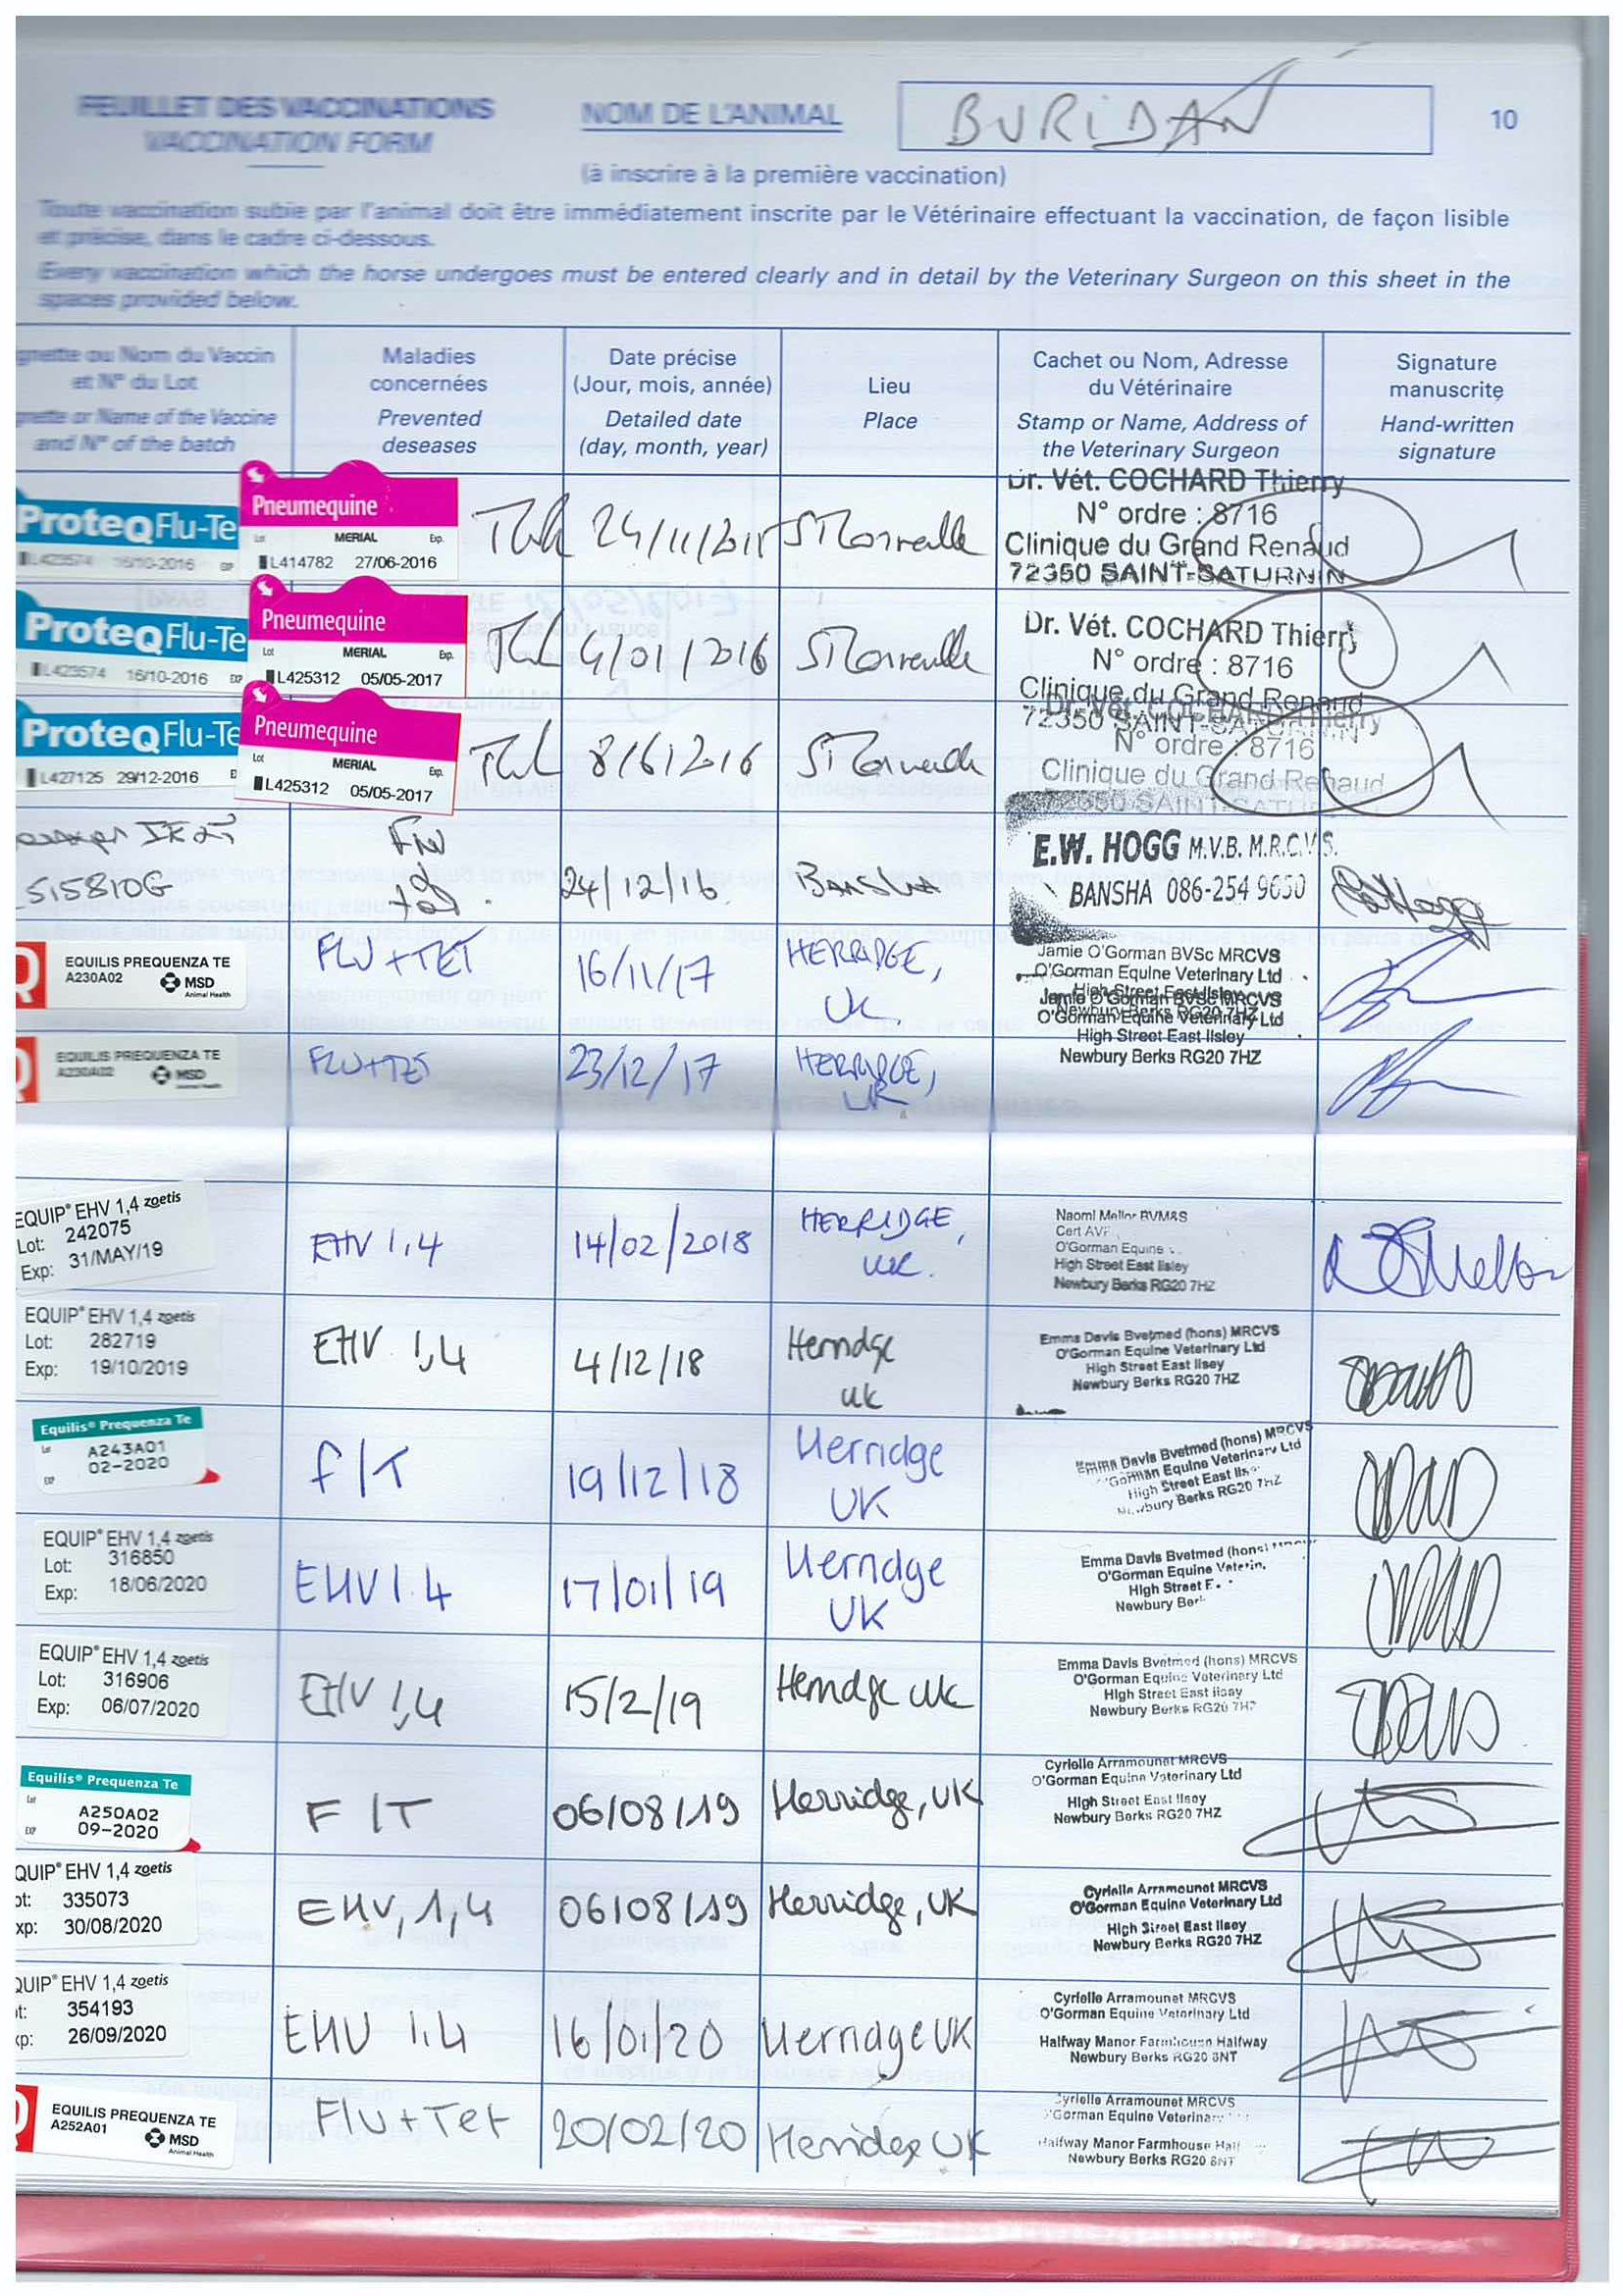 FEUILLET DES VACCINATIONS
VACCINATION FORM
NOM DE L'ANIMAL
BURIDAN
10
(à inscrire à la première vaccination)
Toute vaccination subie par l'animal doit être immédiatement inscrite par le Vétérinaire effectuant la vaccination, de façon lisible
et précise, dans le cadre ci-dessous.
Every vaccination which the horse undergoes must be entered clearly and in detail by the Veterinary Surgeon on this sheet in the
spaces provided below.
gnette ou Nom du Vaccin
et N° du Lot
gnette or Name of the Vaccine
and N° of the batch
Maladies
concernées
Prevented
deseases
Date précise
(Jour, mois, année)
Detailed date
(day, month, year)
Lieu
Place
Cachet ou Nom, Adresse
du Vétérinaire
Stamp or Name, Address of
the Veterinary Surgeon
Signature
manuscrite
Hand-written
signature
ProteqFlu-Te
L423574 16/10-2016 EXP
Pneumequine
Lot MERIAL Exp.
L414782 27/06/2016
24/11/2015
Dr. Vét. COCHARD Thierry
N° ordre : 8716
Clinique du Grand Renaud
72350 SAINT-SATURNIN
ProteqFlu-Te
L423574 16/10-2016 EXP
Pneumequine
Lot MERIAL Exp.
L425312 05/05-2017
4/01/2016
Dr. Vét. COCHARD Thierry
N° ordre : 8716
Clinique du Grand Renaud
72350 SAINT-SATURNIN
ProteqFlu-Te
L427125 29/12-2016
Pneumequine
Lot MERIAL Exp.
L425312 05/05-2017
8/6/2016
Dr. Vét. COCHARD Thierry
N° ordre : 8716
Clinique du Grand Renaud
72350 SAINT-SATURNIN
515810G
Flu
24/12/16.
BANSHA
E.W. HOGG M.V.B. M.R.C.V.S.
BANSHA 086-254 9650
EQUILIS PREQUENZA TE
A230A02
MSD
Animal Health
FLU + TET
16/11/17
HERRIDGE,
UK
Jamie O'Gorman BVSc MRCVS
O'Gorman Equine Veterinary Ltd
High Street East Ilsley
Newbury Berks RG20 7HZ
EQUILIS PREQUENZA TE
A230A02
MSD
FLU+TET
23/12/17
HERRIDGE,
UK
Jamie O'Gorman BVSc MRCVS
O'Gorman Equine Veterinary Ltd
High Street East Ilsley
Newbury Berks RG20 7HZ
EQUIP® EHV 1,4 zoetis
Lot: 242075
Exp: 31/MAY/19
EHV 1,4
14/02/2018
HERRIDGE,
UK.
Naomi Mellor BVM&S
Cert AVP
O'Gorman Equine
High Street East Ilsley
Newbury Berks RG20 7HZ
EQUIP® EHV 1,4 zoetis
Lot: 282719
Exp: 19/10/2019
EHV 1,4
4/12/18
Herridge
UK
Emma Davis Bvetmed (hons) MRCVS
O'Gorman Equine Veterinary Ltd
High Street East Ilsey
Newbury Berks RG20 7HZ
Equilis® Prequenza Te
Lot A243A01
EXP 02-2020
F/T
19/12/18
Herridge
UK
Emma Davis Bvetmed (hons) MRCVS
O'Gorman Equine Veterinary Ltd
High Street East Ils
Newbury Berks RG20 7HZ
EQUIP® EHV 1,4 zoetis
Lot: 316850
Exp: 18/06/2020
EHV 1.4
17/01/19
Herridge
UK
Emma Davis Bvetmed (hons)
O'Gorman Equine Veterin
High Street E
Newbury Ber
EQUIP® EHV 1,4 zoetis
Lot: 316906
Exp: 06/07/2020
EHV 1,4
15/2/19
Herridge UK
Emma Davis Bvetmed (hons) MRCVS
O'Gorman Equine Veterinary Ltd
High Street East Ilsey
Newbury Berks RG20 7HZ
Equilis® Prequenza Te
Lot A250A02
EXP 09-2020
F/T
06/08/19
Herridge, UK
Cyrielle Arramounet MRCVS
O'Gorman Equine Veterinary Ltd
High Street East Ilsey
Newbury Berks RG20 7HZ
QUIP® EHV 1,4 zoetis
ot: 335073
xp: 30/08/2020
EHV, 1,4
06/08/19
Herridge, UK
Cyrielle Arramounet MRCVS
O'Gorman Equine Veterinary Ltd
High Street East Ilsey
Newbury Berks RG20 7HZ
QUIP® EHV 1,4 zoetis
t: 354193
xp: 26/09/2020
EHV 1.4
16/01/20
Herridge UK
Cyrielle Arramounet MRCVS
O'Gorman Equine Veterinary Ltd
Halfway Manor Farmhouse Halfway
Newbury Berks RG20 8NT
EQUILIS PREQUENZA TE
A252A01
MSD
Animal Health
Flu+Tet
20/02/20
Herridge UK
Cyrielle Arramounet MRCVS
O'Gorman Equine Veterinary
Halfway Manor Farmhouse Half
Newbury Berks RG20 8NT